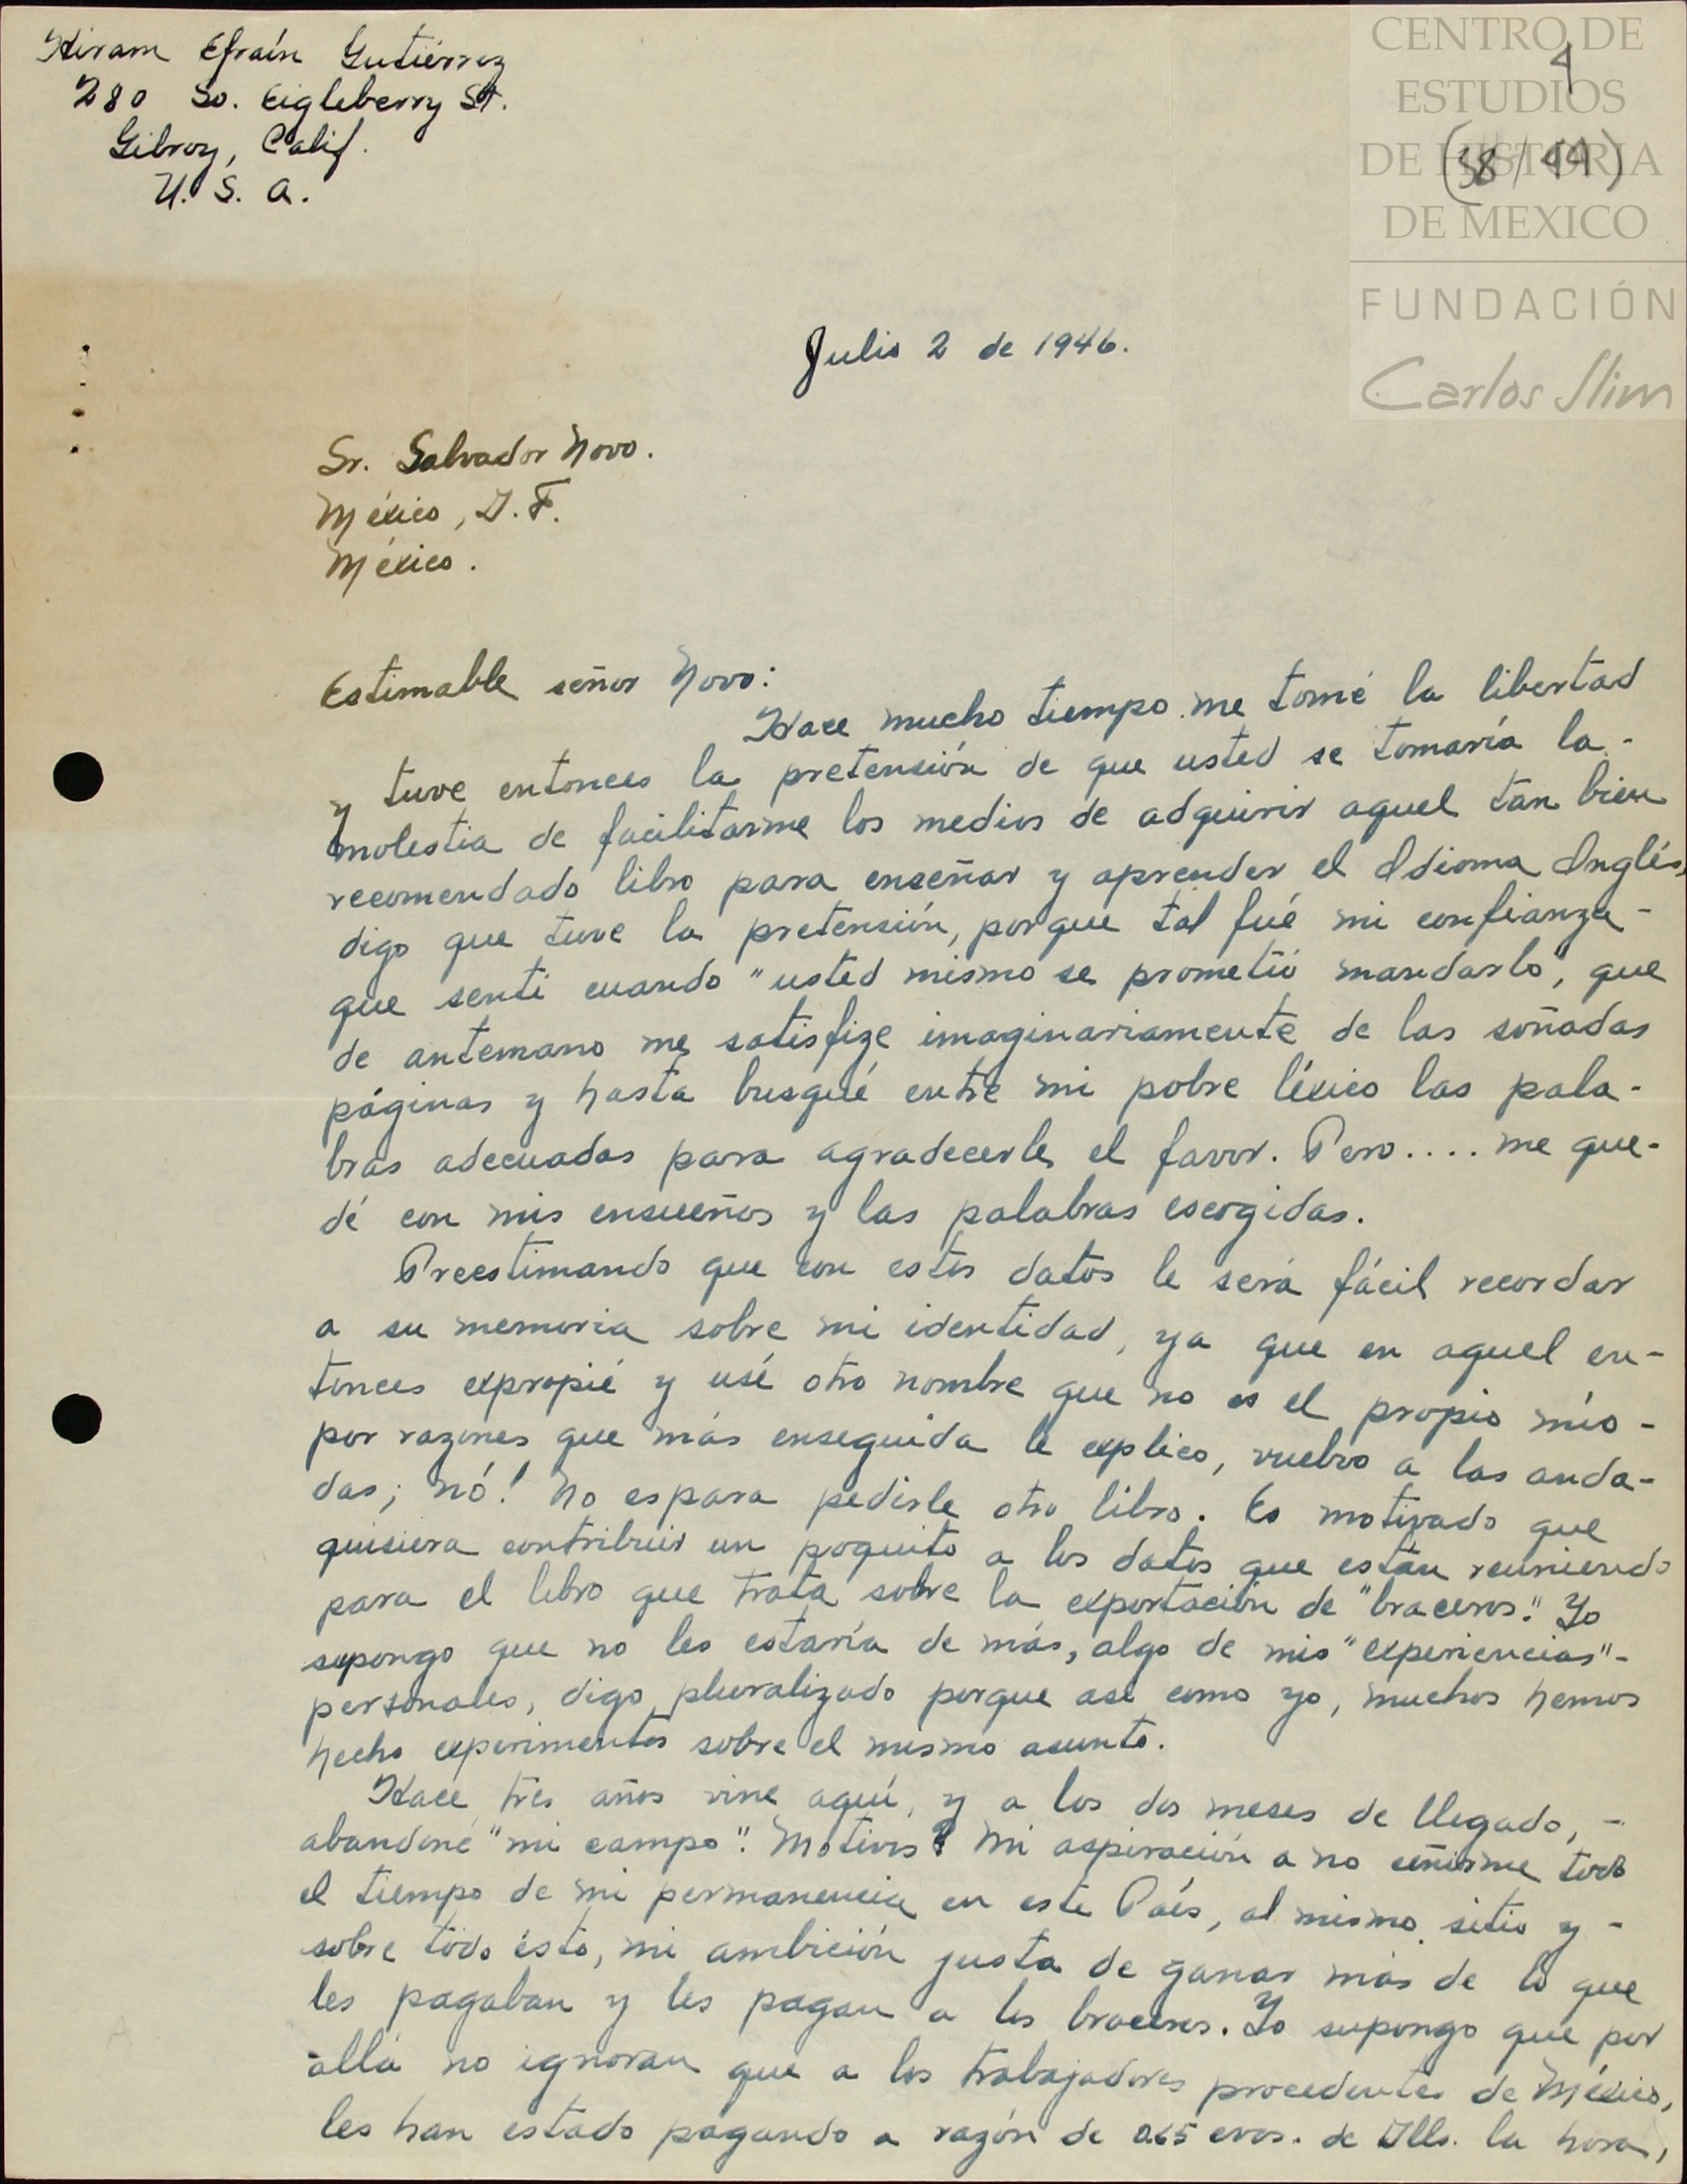 Hiram Efraín Gutiérrez
280 So. Eigleberry St.
Gilroy, Calif.
U. S. A.
CENTRO DE
ESTUDIOS
DE HISTORIA
DE MEXICO
FUNDACIÓN
Carlos Slim
4
(38/44)
Julio 2 de 1946.
Sr. Salvador Novo.
México, D. F.
México.
Estimable señor Novo:
Hace mucho tiempo me tomé la libertad
y tuve entonces la pretensión de que usted se tomaría la-
molestia de facilitarme los medios de adquirir aquel tan bien
recomendado libro para enseñar y aprender el Idioma Inglés,
digo que tuve la pretensión, porque tal fué mi confianza-
que sentí cuando "usted mismo se prometió mandarlo", que
de antemano me satisfize imaginariamente de las soñadas
páginas y hasta busqué entre mi pobre léxico las pala-
bras adecuadas para agradecerle el favor. Pero.... me que-
dé con mis ensueños y las palabras escogidas.
Preestimando que con estos datos le será fácil recordar
a su memoria sobre mi identidad, ya que en aquel en-
tonces expropié y usé otro nombre que no es el propio mío-
por razones que más enseguida le explico, vuelvo a las anda-
das; nó! No es para pedirle otro libro. Es motivado que
quisiera contribuir un poquito a los datos que están reuniendo
para el libro que trata sobre la exportación de "braceros." Yo
supongo que no les estaría de más, algo de mis "experiencias"-
personales, digo pluralizado porque así como yo, muchos hemos
hecho experimentos sobre el mismo asunto.
Hace tres años vine aquí, y a los dos meses de llegado, -
abandoné "mi campo". Motivos? Mi aspiración a no ceñirme todo
el tiempo de mi permanencia en este País, al mismo sitio y -
sobre todo ésto, mi ambición justa de ganar más de lo que
les pagaban y les pagan a los braceros. Yo supongo que por
allá no ignoran que a los trabajadores procedentes de México,
les han estado pagando a razón de 0.65 cvos. de Dlls. la hora,